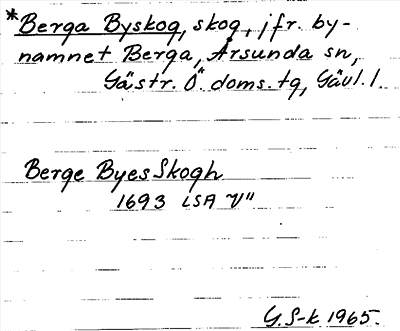 *Berga Byskog, skog, jfr. by-
namnet Berga, Årsunda sn,
Gästr. Ö. doms. tg, Gävl. l.
Berge Byes Skogh
1693 LSA V"
G. S-k 1965.